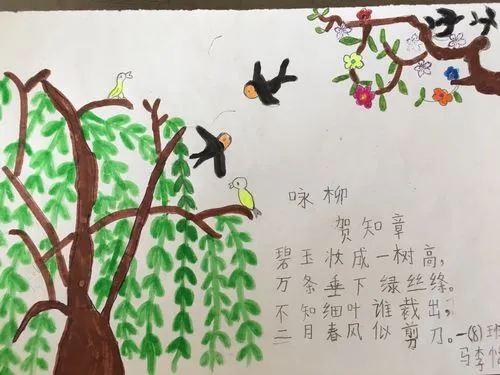 咏柳
贺知章
碧玉妆成一树高,
万条垂下绿丝绦。
不知细叶谁裁出,
二月春风似剪刀。
一(8)班
马李